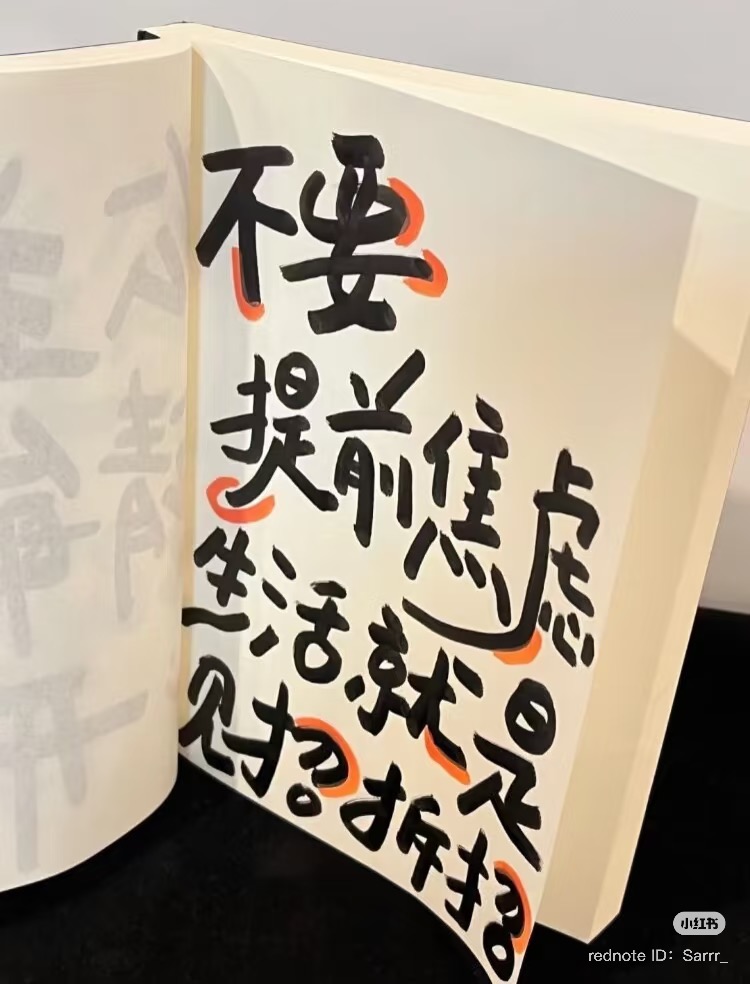 不要
提前焦虑
生活就是
见招拆招
小红书
rednote ID: Sarrr_